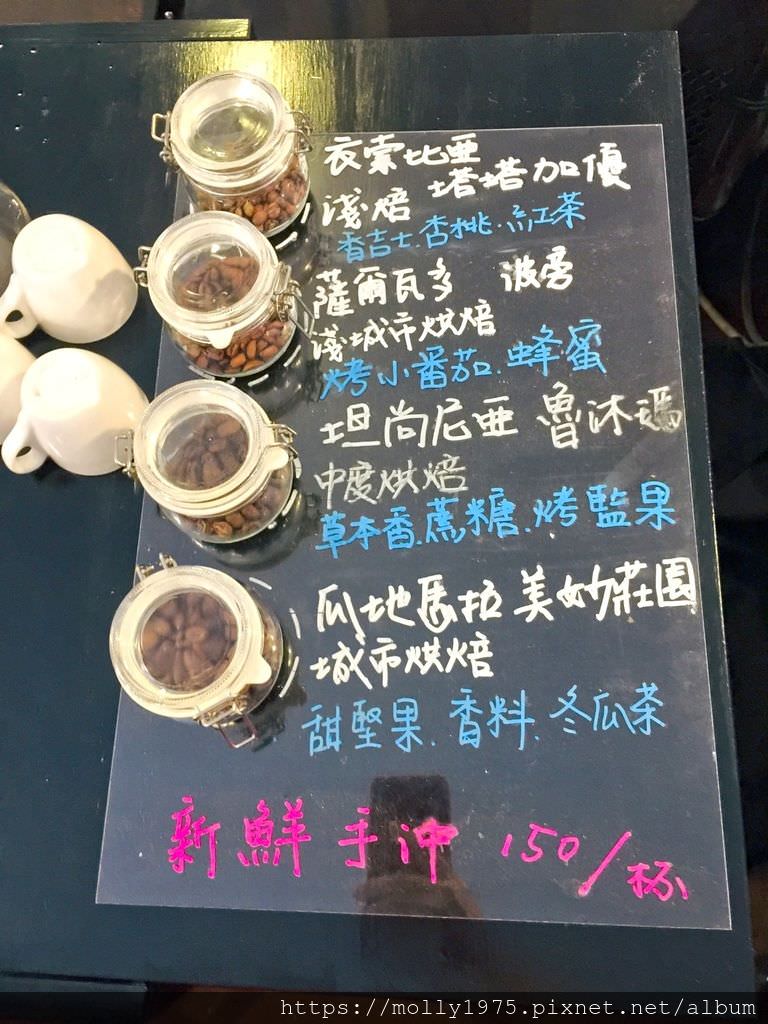 衣索比亞
塔塔加優
淺焙
香吉士.杏桃.紅茶
薩爾瓦多 波旁
淺城市烘焙
烤小番茄.蜂蜜
坦尚尼亞 魯沐瑪
中度烘焙
草本香.蔗糖.烤監果
瓜地馬拉 美妙莊園
城市烘焙
甜堅果.香料.冬瓜茶
新鮮手沖 150/杯
https://molly1975.pixnet.net/album